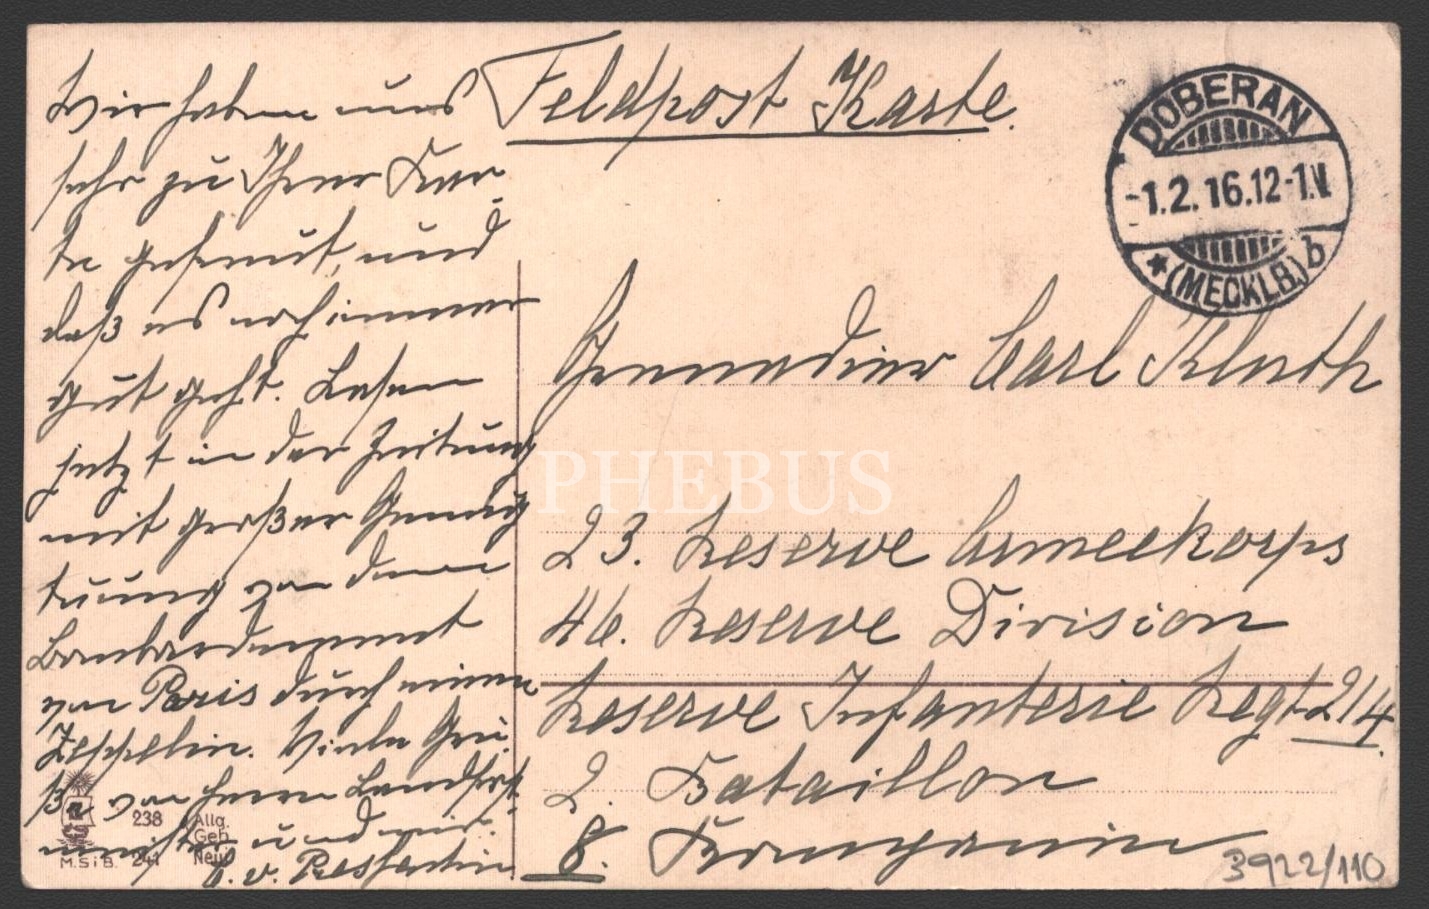 Feldpost Karte.
DOBERAN
-1.2.16.12-1.N
* (MECKLB.) b
Wir haben uns
sehr zu Ihrer Kar-
te gefreut, und
daß es noch immer
gut geht. Lesen
jetzt in der Zeitung
mit großer Genug
tuung von dem
Bombardement
von Paris durch einen
Zeppelin. Viele Grü-
ße von Herrn Landforst
meister und mir.
C. v. Pressentin
Grenadier Carl Kluth
23. Reserve Armeekorps
46. Reserve Division
Reserve Infanterie Regt 214.
2. Bataillon
8. Kompanie
PHEBUS
M.SiB.
238
241
Allg.
Geh.
Neu
3922/110